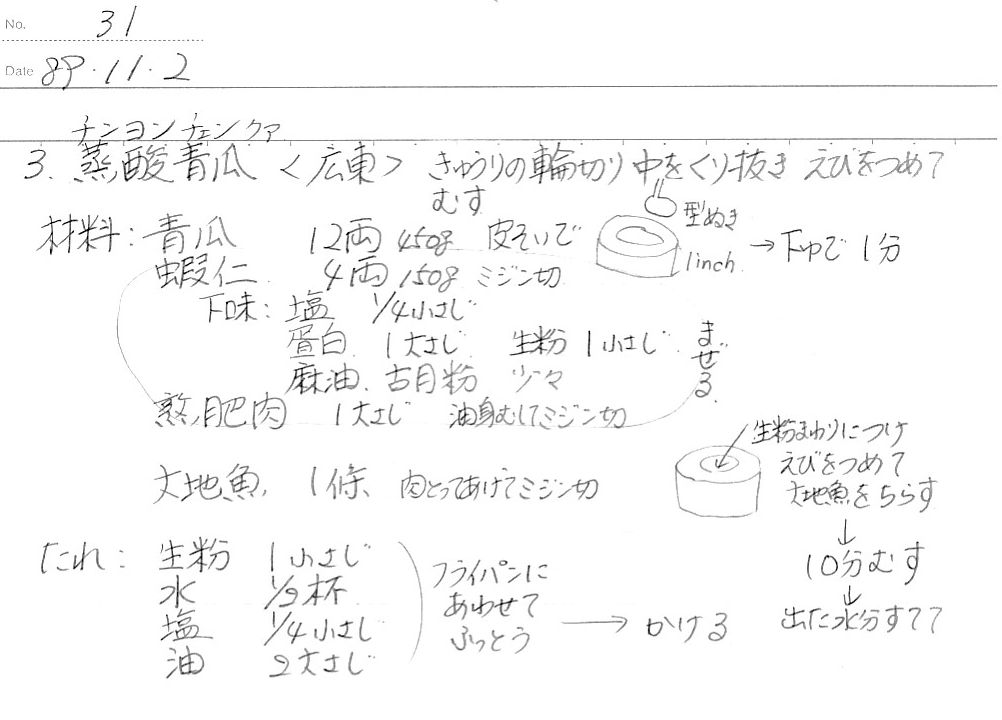 No. 31
Date 89・11・2
チンヨンチェンクァ
3. 蒸酸青瓜 <広東> きゅうりの輪切り 中をくり抜き えびをつめて
むす
材料: 青瓜 12両 450g 皮そいで
型ぬき
1inch
→下ゆで 1分
蝦仁 4両 150g ミジン切
下味: 塩 1/4小さじ
蛋白 1大さじ 生粉 1小さじ
麻油、古月粉 少々
まぜる
熟肥肉 1大さじ 油身むしてミジン切
大地魚、1條、肉とってあげてミジン切
生粉まわりにつけ
えびをつめて
大地魚をちらす
↓
10分むす
↓
出た水分すてて
たれ: 生粉 1小さじ
水 1/3杯
塩 1/4小さじ
油 2大さじ
フライパンに
あわせて
ふっとう
→ かける